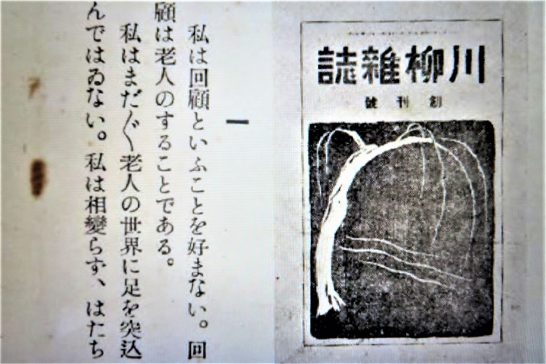 川柳雜誌
創刊號
一
私は回顧といふことを好まない。回
顧は老人のすることである。
私はまだ〴〵老人の世界に足を突込
んではゐない。私は相變らず、はたち